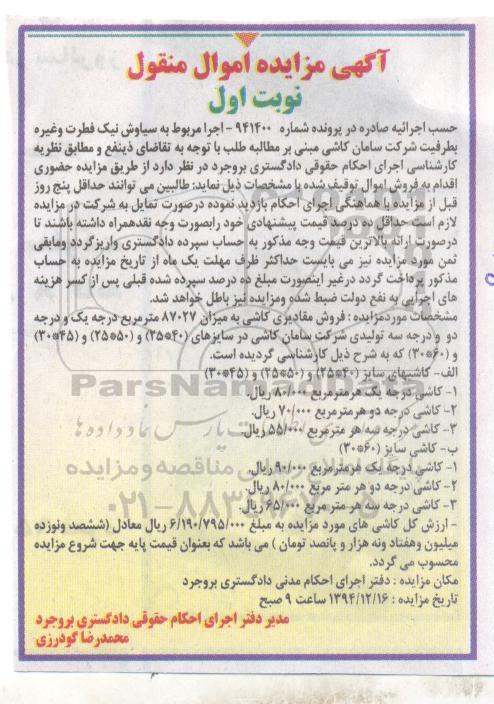 آگهی مزایده اموال منقول
نوبت اول
حسب اجرائیه صادره در پرونده شماره ۹۴۱۴۰۰ - اجرا مربوط به سیاوش نیک فطرت وغیره
بطرفیت شرکت سامان کاشی مبنی بر مطالبه طلب با توجه به تقاضای ذینفع و مطابق نظریه
کارشناسی اجرای احکام حقوقی دادگستری بروجرد در نظر دارد از طریق مزایده حضوری
اقدام به فروش اموال توقیف شده با مشخصات ذیل نماید: طالبین می توانند حداقل پنج روز
قبل از مزایده با هماهنگی اجرای احکام بازدید نموده درصورت تمایل به شرکت در مزایده
لازم است حداقل ده درصد قیمت پیشنهادی خود رابصورت وجه نقدهمراه داشته باشند تا
درصورت ارائه بالاترین قیمت وجه مذکور به حساب سپرده دادگستری واریزگردد ومابقی
ثمن مورد مزایده نیز می بایست حداکثر ظرف مهلت یک ماه از تاریخ مزایده به حساب
مذکور پرداخت گردد درغیر اینصورت مبلغ ده درصد سپرده شده قبلی پس از کسر هزینه
های اجرایی به نفع دولت ضبط شده ومزایده نیز باطل خواهد شد.
مشخصات موردمزایده : فروش مقادیری کاشی به میزان ۸۷۰۲۷ مترمربع درجه یک و درجه
دو و درجه سه تولیدی شرکت سامان کاشی در سایزهای (۴۰*۲۵) و (۵۰*۲۵) و (۴۵*۳۰)
و (۶۰*۳۰) که به شرح ذیل کارشناسی گردیده است.
الف- کاشیهای سایز (۴۰*۲۵) و (۵۰*۲۵) و (۴۵*۳۰)
۱- کاشی درجه یک هرمترمربع ۸۰/۰۰۰ ریال.
۲- کاشی درجه دو هرمترمربع ۷۰/۰۰۰ ریال.
۳- کاشی درجه سه هر مترمربع ۵۵/۰۰۰ ریال.
ب- کاشی سایز (۶۰*۳۰)
۱- کاشی درجه یک هرمترمربع ۹۰/۰۰۰ ریال.
۲- کاشی درجه دو هر متر مربع ۸۰/۰۰۰ ریال.
۳- کاشی درجه سه هر متر مربع ۶۵/۰۰۰ ریال.
- ارزش کل کاشی های مورد مزایده به مبلغ ۶/۱۹۰/۷۹۵/۰۰۰ ریال معادل (ششصد ونوزده
میلیون وهفتاد ونه هزار و پانصد تومان ) می باشد که بعنوان قیمت پایه جهت شروع مزایده
محسوب می گردد.
مکان مزایده : دفتر اجرای احکام مدنی دادگستری بروجرد
تاریخ مزایده : ۱۳۹۴/۱۲/۱۶ ساعت ۹ صبح
مدیر دفتر اجرای احکام حقوقی دادگستری بروجرد
محمدرضا گودرزی
ParsNamadData
پارس نماد داده ها
مناقصه و مزایده